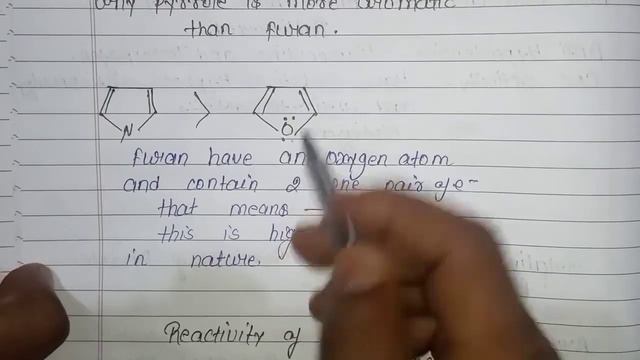 Why pyrrole is more aromatic
than furan.
N > O
furan have an oxygen atom
and contain 2 lone pair of e-
that means —
this is hig
in nature.
Reactivity of